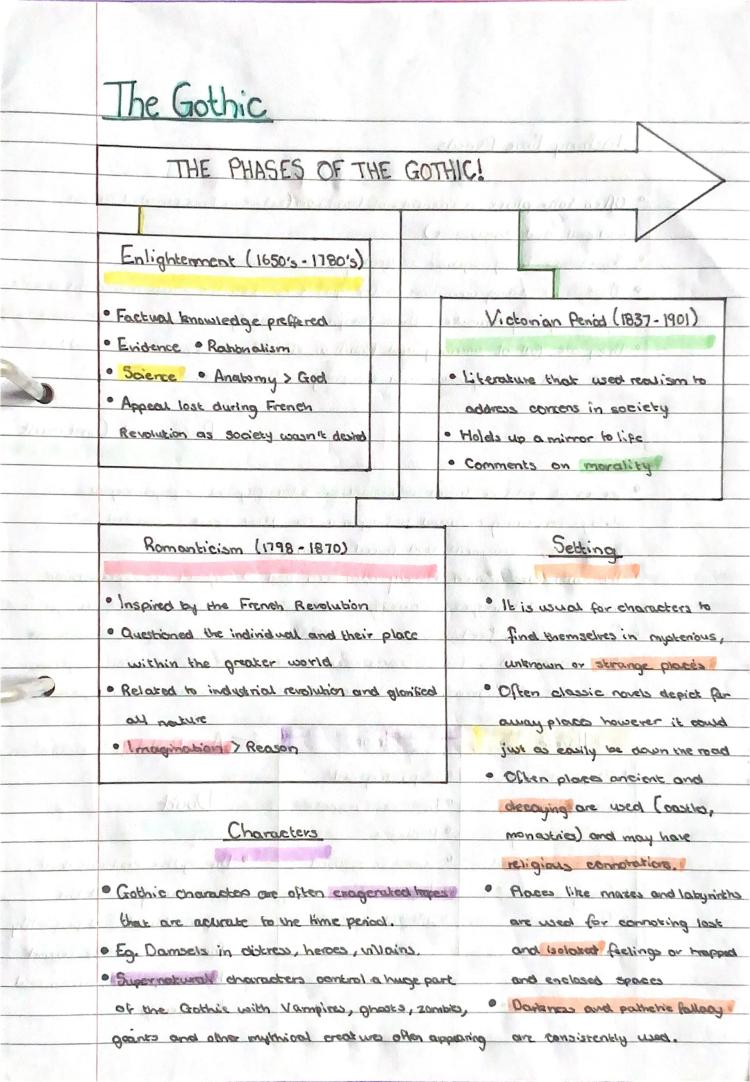 The Gothic
THE PHASES OF THE GOTHIC!
Enlightenment (1650's - 1780's)
• Factual knowledge preffered
• Evidence • Rationalism
• Science • Anatomy > God
• Appeal lost during French
Revolution as society wasn't desired
Victorian Period (1837 - 1901)
• Literature that used realism to
address concens in society
• Holds up a mirror to life
• Comments on morality
Romanticism (1798 - 1870)
• Inspired by the French Revolution
• Questioned the individual and their place
within the greater world
• Related to industrial revolution and glorified
all nature
• Imagination > Reason
Characters
• Gothic characters are often exagerated tropes
that are acurate to the time period.
• Eg. Damsels in distress, heroes, villains.
• Supernatural characters control a huge part
of the Gothic with Vampires, ghosts, zombies,
geants and other mythical creatures often appearing
Setting
• It is usual for characters to
find themselves in mysterious,
unknown or strange places
• Often classic novels depict far
away places however it could
just as easily be down the road
• Often places ancient and
decaying are used (castles,
monastries) and may have
religious connotations.
• Places like mazes and labyrinths
are used for connoting lost
and isolated feelings or trapped
and enclosed spaces
• Darkness and pathetic fallacy
are consistently used.